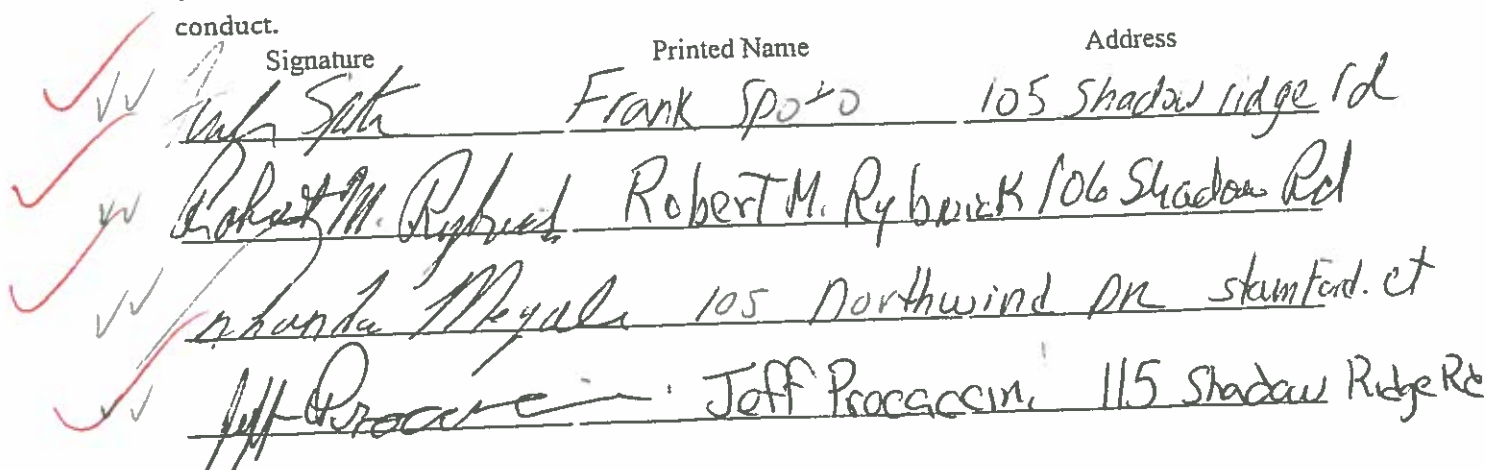 conduct.
Signature Printed Name Address
Frank Spoto 105 Shadow ridge rd
Robert M. Rybnick Robert M. Rybnick 106 Shadow Rd
105 Northwind DR stamford. ct
Jeff Procaccini 115 Shadow Ridge Rd